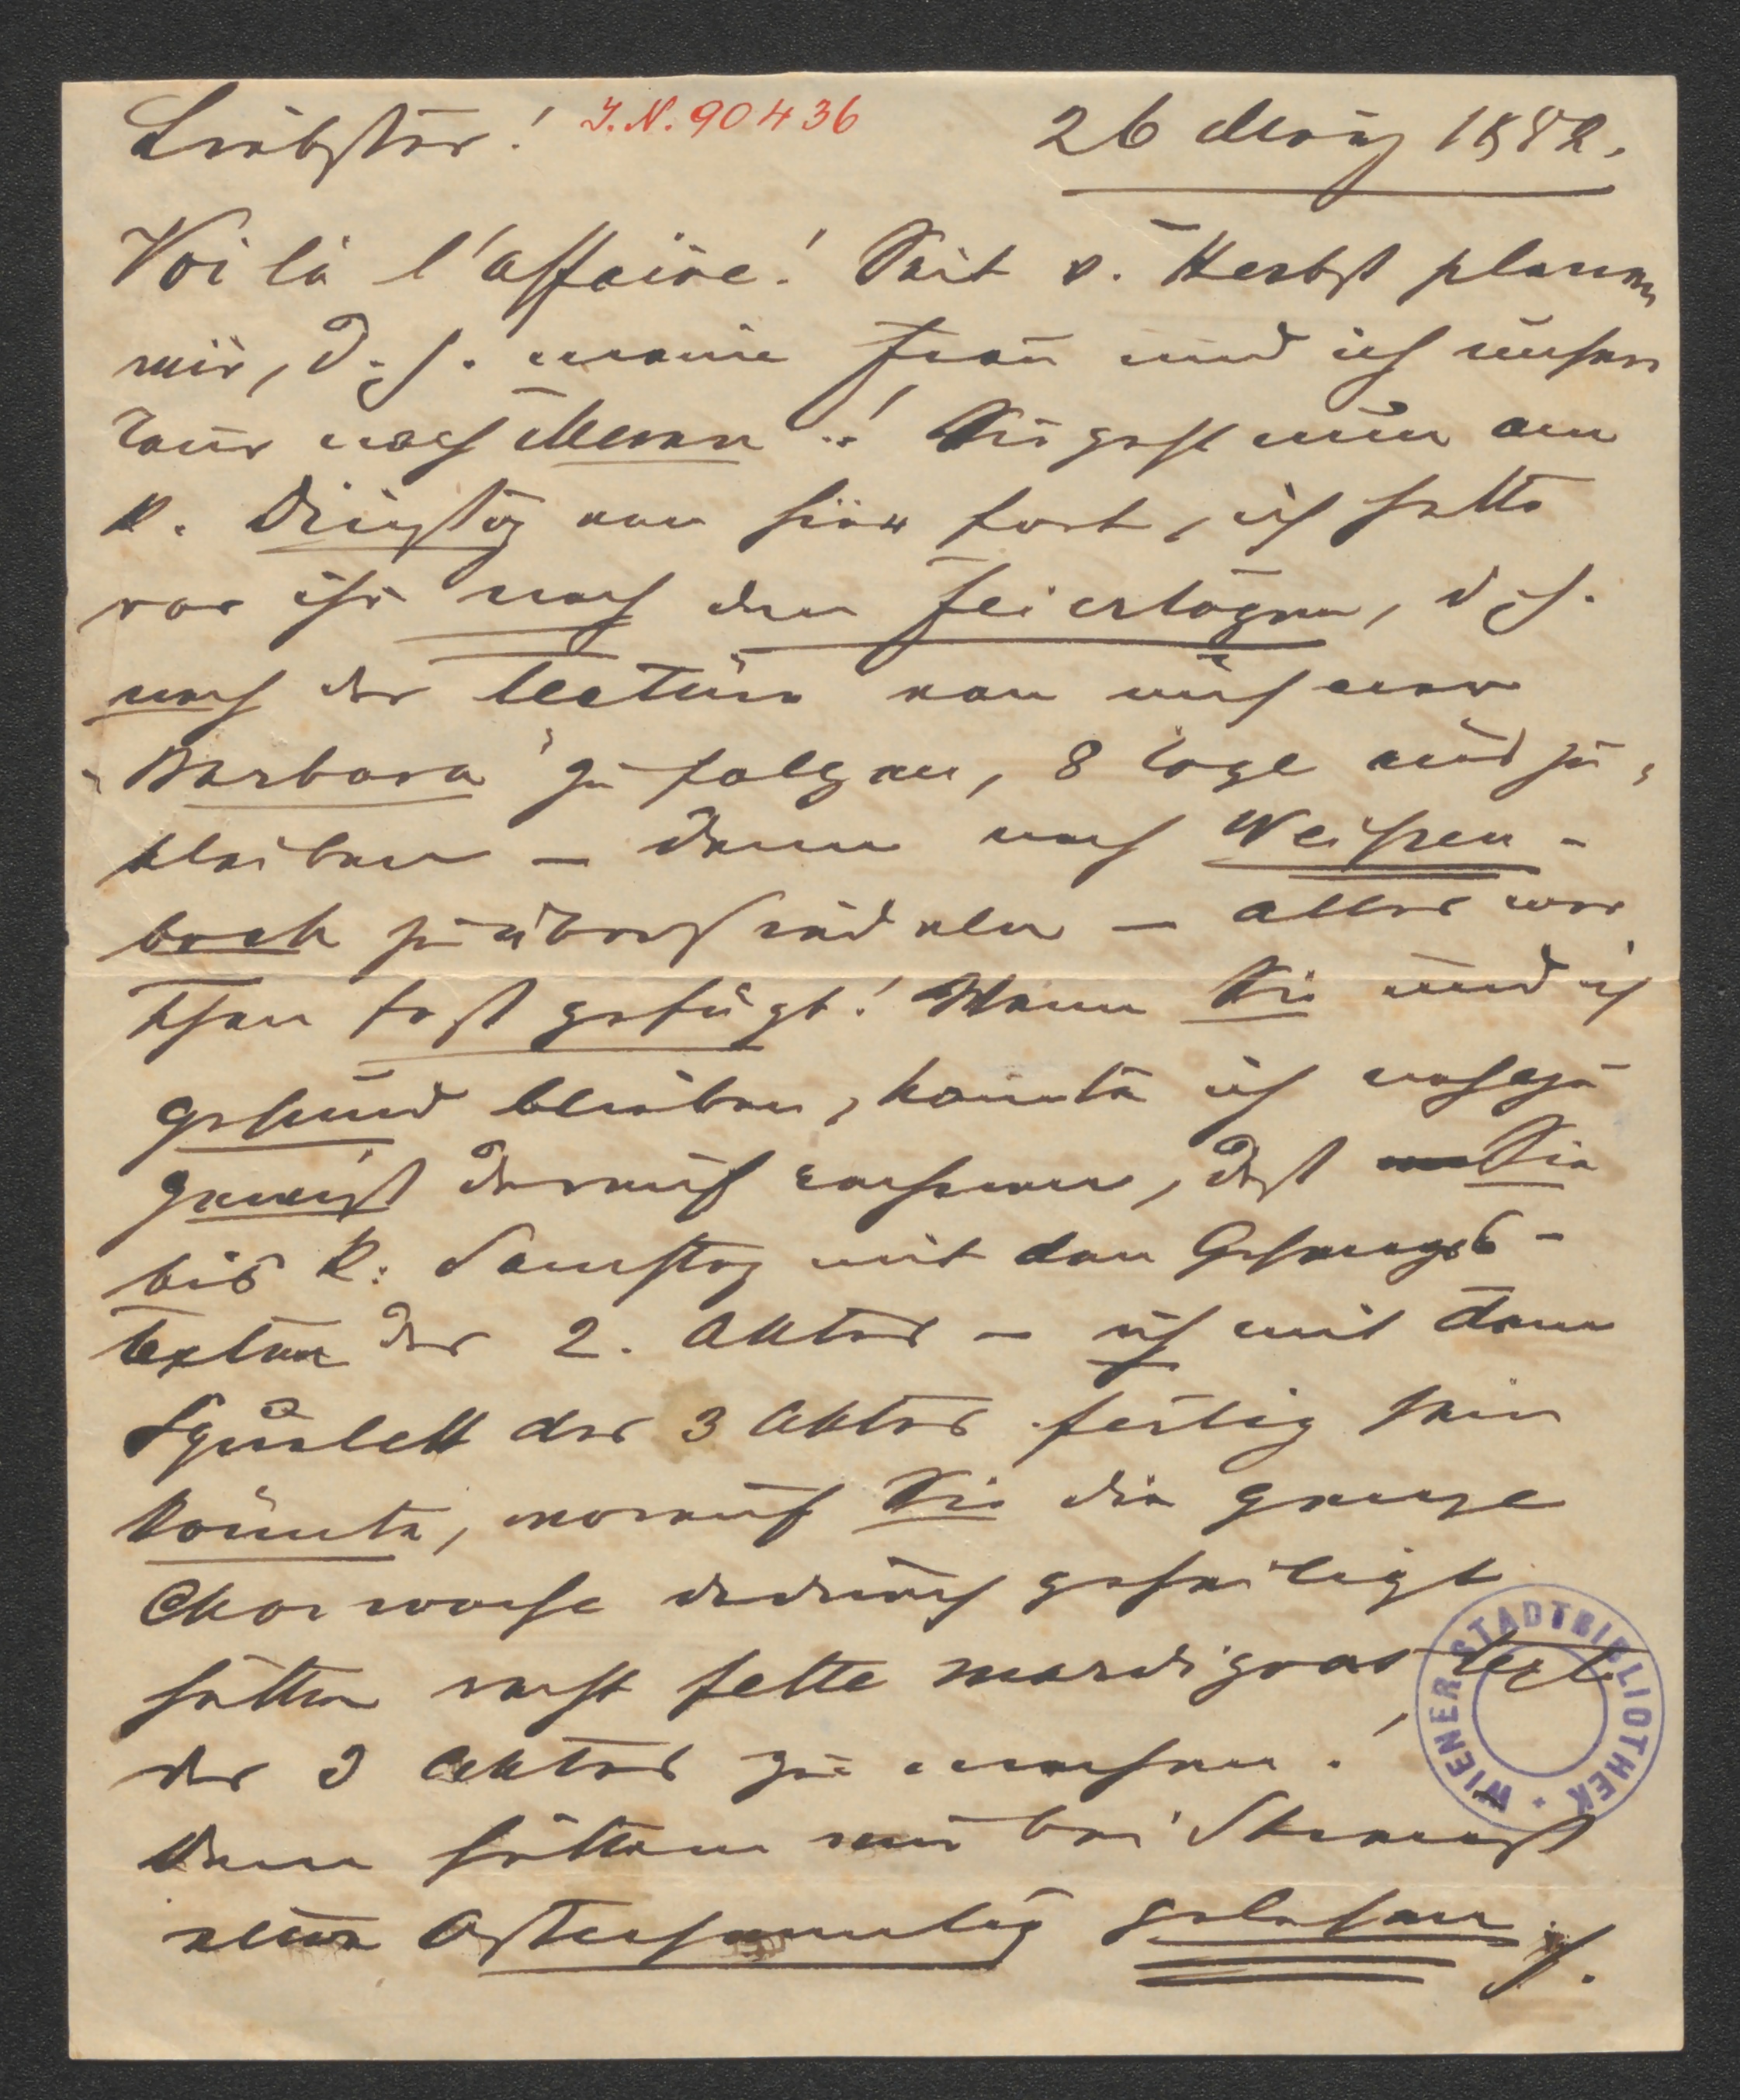 Liebster! I.N. 90436 26 März 1882.
Voilà l'affaire! Seit v. Herbst planen
wir, d. h. meine Frau und ich unsere
Tour nach Meran! Sie geht nun am
k. Dienstag von hier fort, ich hatte
vor ihr nach den Feiertagen, d. h.
nach der Lectüre von unserer
"Barbara" zu folgen, 8 Tage aus zu
bleiben – dann nach Weissen-
bach zu übersiedeln – alles war
schon fest gefügt! Wenn Sie und ich
gesund blieben, konnte ich nahezu
gewiß darauf rechnen, daß Sie
bis k. Samstag mit den Gesangs-
texten des 2. Aktes – ich mit dem
Squelett des 3 Aktes fertig sein
könnte, worauf Sie die ganze
Charwoche dadurch geheiligt
hätten recht fette mardigras Texte
des 3 Aktes zu machen!
Dann hätten wir bei Strauss
Ostersonntag gelesen
WIENER STADTBIBLIOTHEK